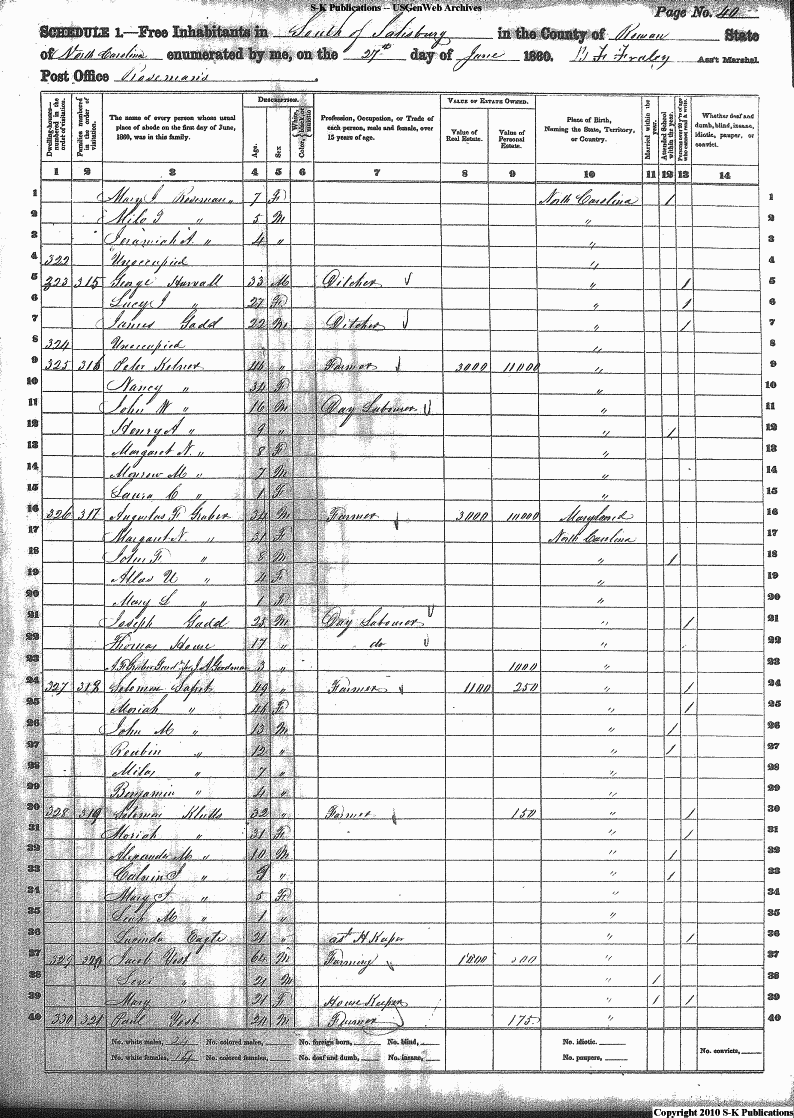 S-K Publications -- USGenWeb Archives
Page No. 40
SCHEDULE 1.—Free Inhabitants in South of Salisbury in the County of Rowan State
of North Carolina enumerated by me, on the 27th day of June 1860. Fraley Ass't Marshal.
Post Office Rosemans
Dwelling-houses numbered in the order of visitation. Families numbered in the order of visitation. The name of every person whose usual place of abode on the first day of June, 1860, was in this family. DESCRIPTION. Age. Sex. Color, White, black, or mulatto. Profession, Occupation, or Trade of each person, male and female, over 15 years of age. VALUE OF ESTATE OWNED. Value of Real Estate. Value of Personal Estate. Place of Birth, Naming the State, Territory, or Country. Married within the year. Attended School within the year. Persons over 20 y'rs of age who cannot read & write. Whether deaf and dumb, blind, insane, idiotic, pauper, or convict.
1 2 3 4 5 6 7 8 9 10 11 12 13 14
1 Mary J Roseman 7 F North Carolina / 1
2 Milo " 5 M " 2
3 Jeramiah A. " 4 " " 3
4 322 Unoccupied " 4
5 323 315 George 33 M Ditcher " / 5
6 Lucy J " 27 F " / 6
7 James Gadd 22 M Ditcher " / 7
8 324 Unoccupied " 8
9 325 316 Peter " Farmer 3000 11000 " 9
10 Nancy " 34 F " 10
11 John W " 16 M Day Labourer " 11
12 Henry A " 9 " " / 12
13 Margaret N. " 8 F " 13
14 M " 7 M " 14
15 Laura C " 1 F " 15
16 326 317 Augustus F Graber 34 M Farmer 3000 10000 Maryland 16
17 Margaret N " 31 F North Carolina 17
18 John F " 8 M " / 18
19 " 4 F " 19
20 Mary L " 1 " 20
21 Joseph Gadd 25 M Day Labourer " / 21
22 Thomas House 17 " do " 22
23 3 " 1000 " 23
24 327 318 Soloman 49 " Farmer 1100 250 " / 24
25 Moriah " F " / 25
26 John M " 13 M " / 26
27 Reubin " 12 " " / 27
28 Milas " 7 " " 28
29 Benjamin " 4 " " 29
30 328 319 Soloman Kluttz 32 " Farmer 150 " / 30
31 Moriah " 31 F " / 31
32 Alexander M " 10 M " / 32
33 Calvin J " " " / 33
34 Mary " 5 F " 34
35 M " 1 " " 35
36 Lucinda Eagle 21 " ast H Keeper " / 36
37 329 320 Jacob Yost 64 M Farming 1800 " 37
38 Levi " 21 M " / 38
39 Mary " 21 F House Keeper " / / 39
40 330 321 Paul Yost M Farmer 175 " 40
No. white males, 24 No. colored males, No. foreign born, No. blind, No. idiotic,
No. white females, 14 No. colored females, No. deaf and dumb, No. insane, No. paupers, No. convicts,
Copyright 2010 S-K Publications